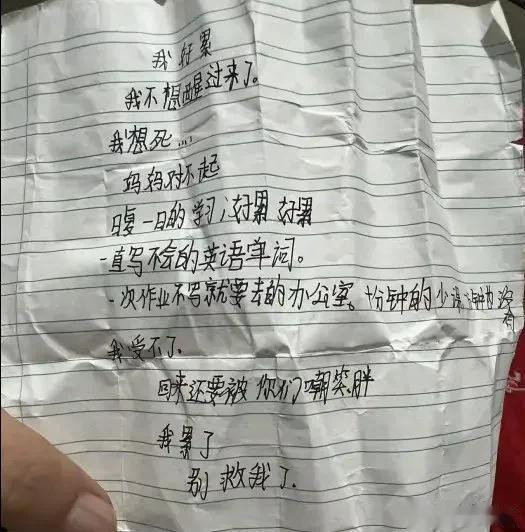 我好累
我不想醒过来了。
我想死...
妈妈对不起
日复一日的学习,好累 好累
一直写不会的英语单词。
一次作业不写就要去的办公室。十分钟的少课 钟的没有
我受不了.
回来还要被你们嘲笑胖
我累了
别救我了.